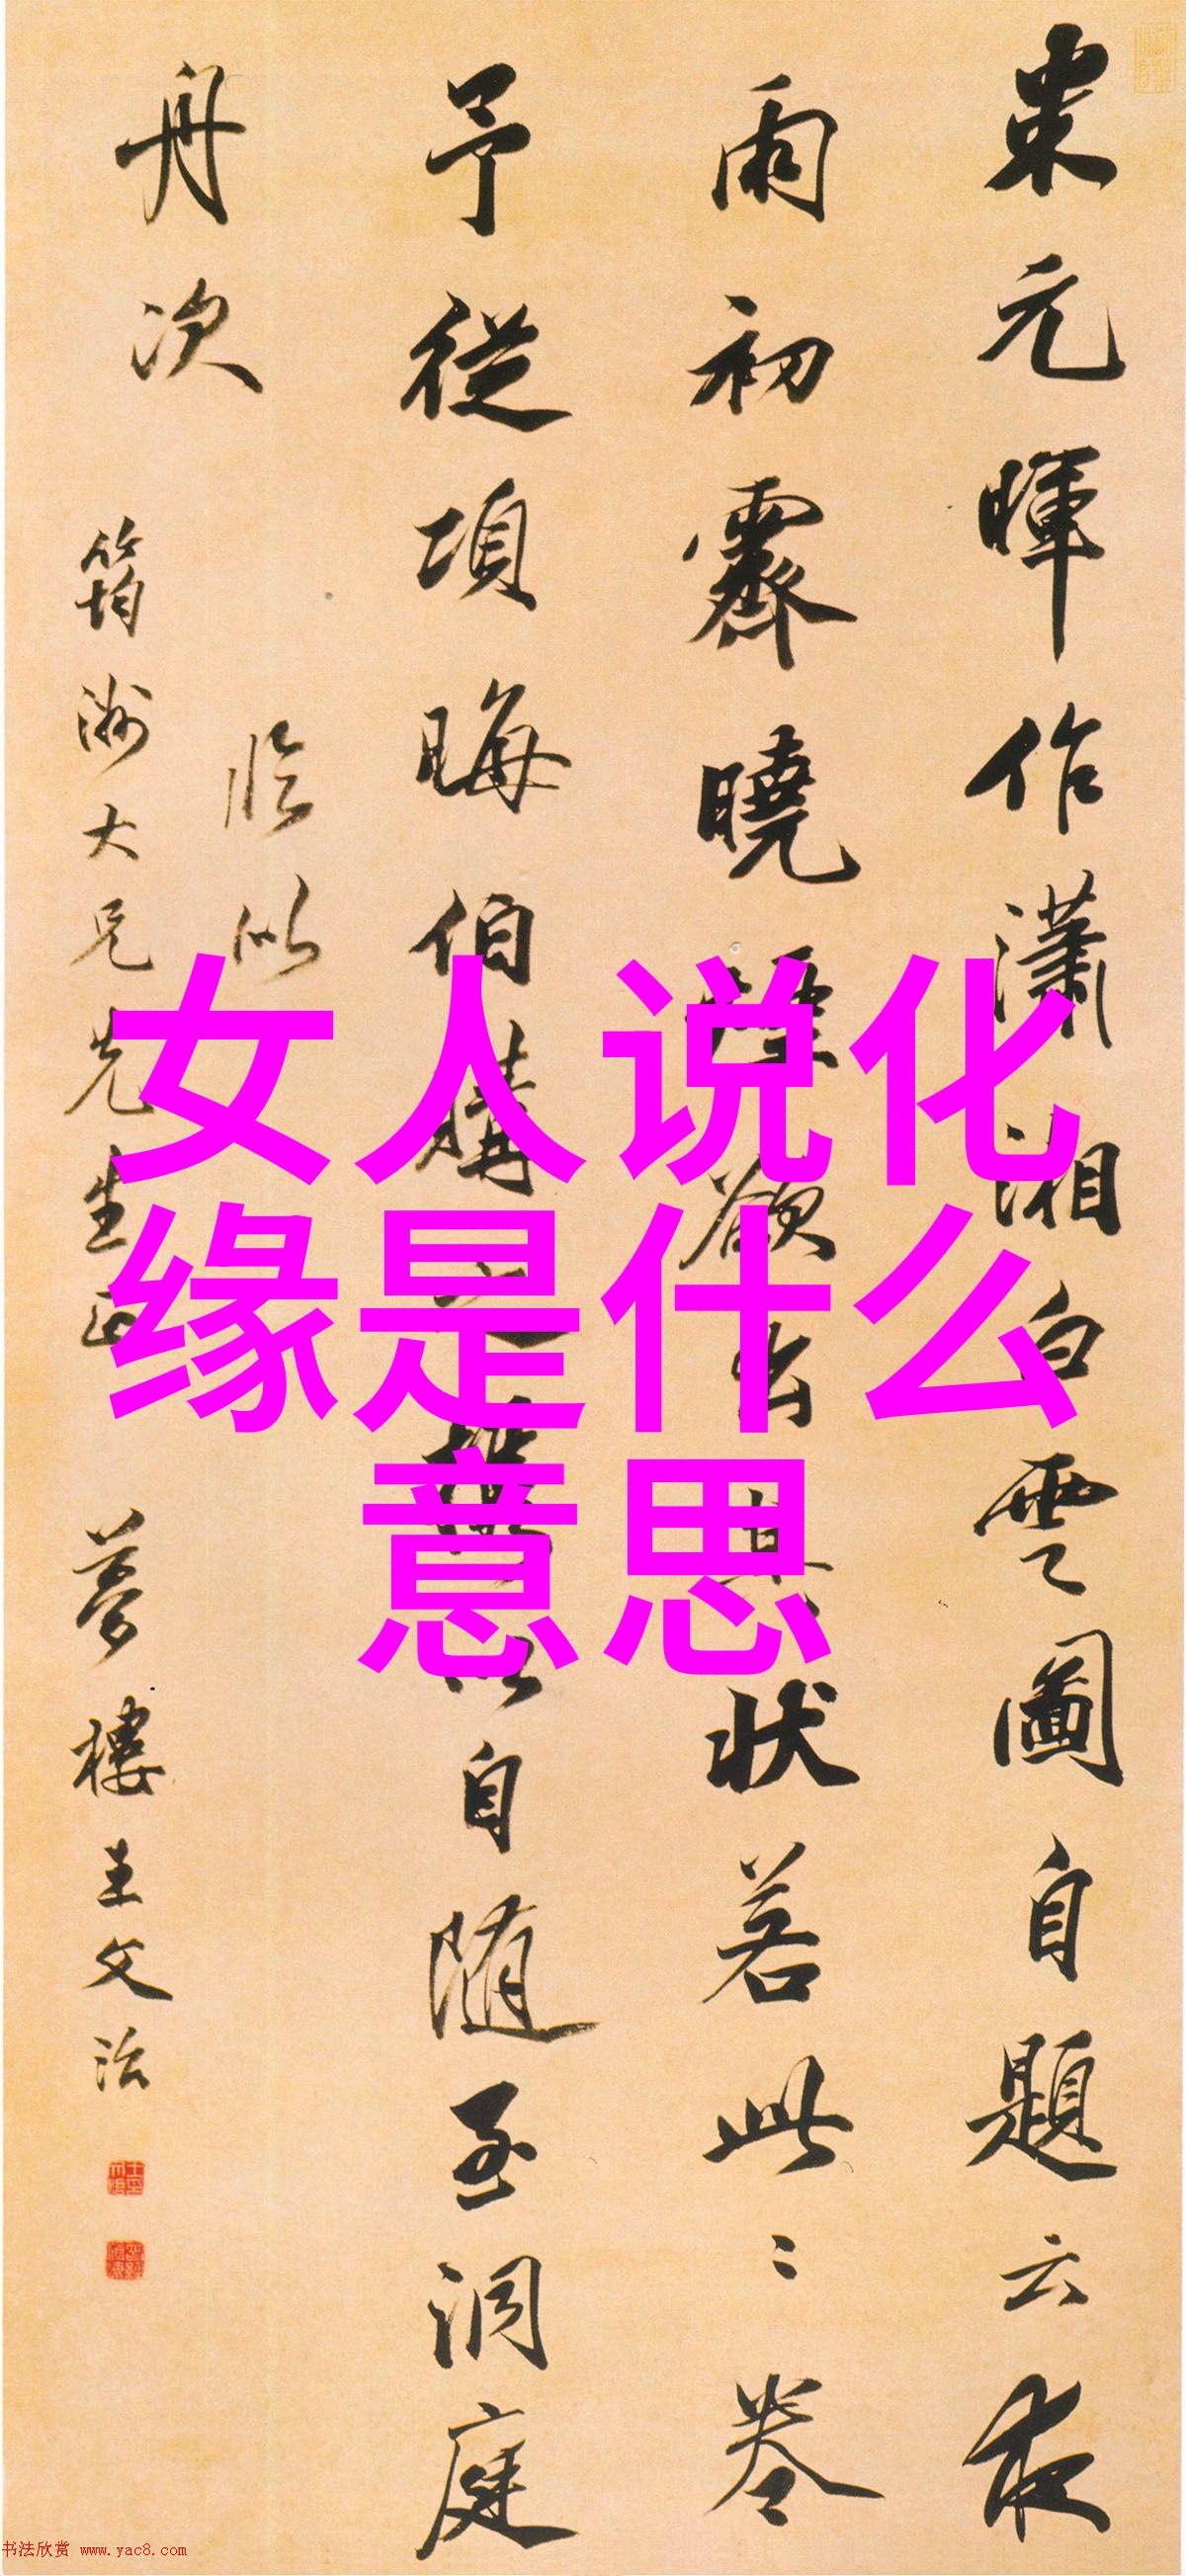 米元暉作瀟湘白雲圖自題云夜
雨初霽曉煙欲出其狀若此〻卷
予從項晦伯購之攜以自隨至洞庭
舟次
臨似
筠洲大兄先生正 夢樓王文治
女人说化
缘是什么
意思
书法欣赏 www.yac8.com